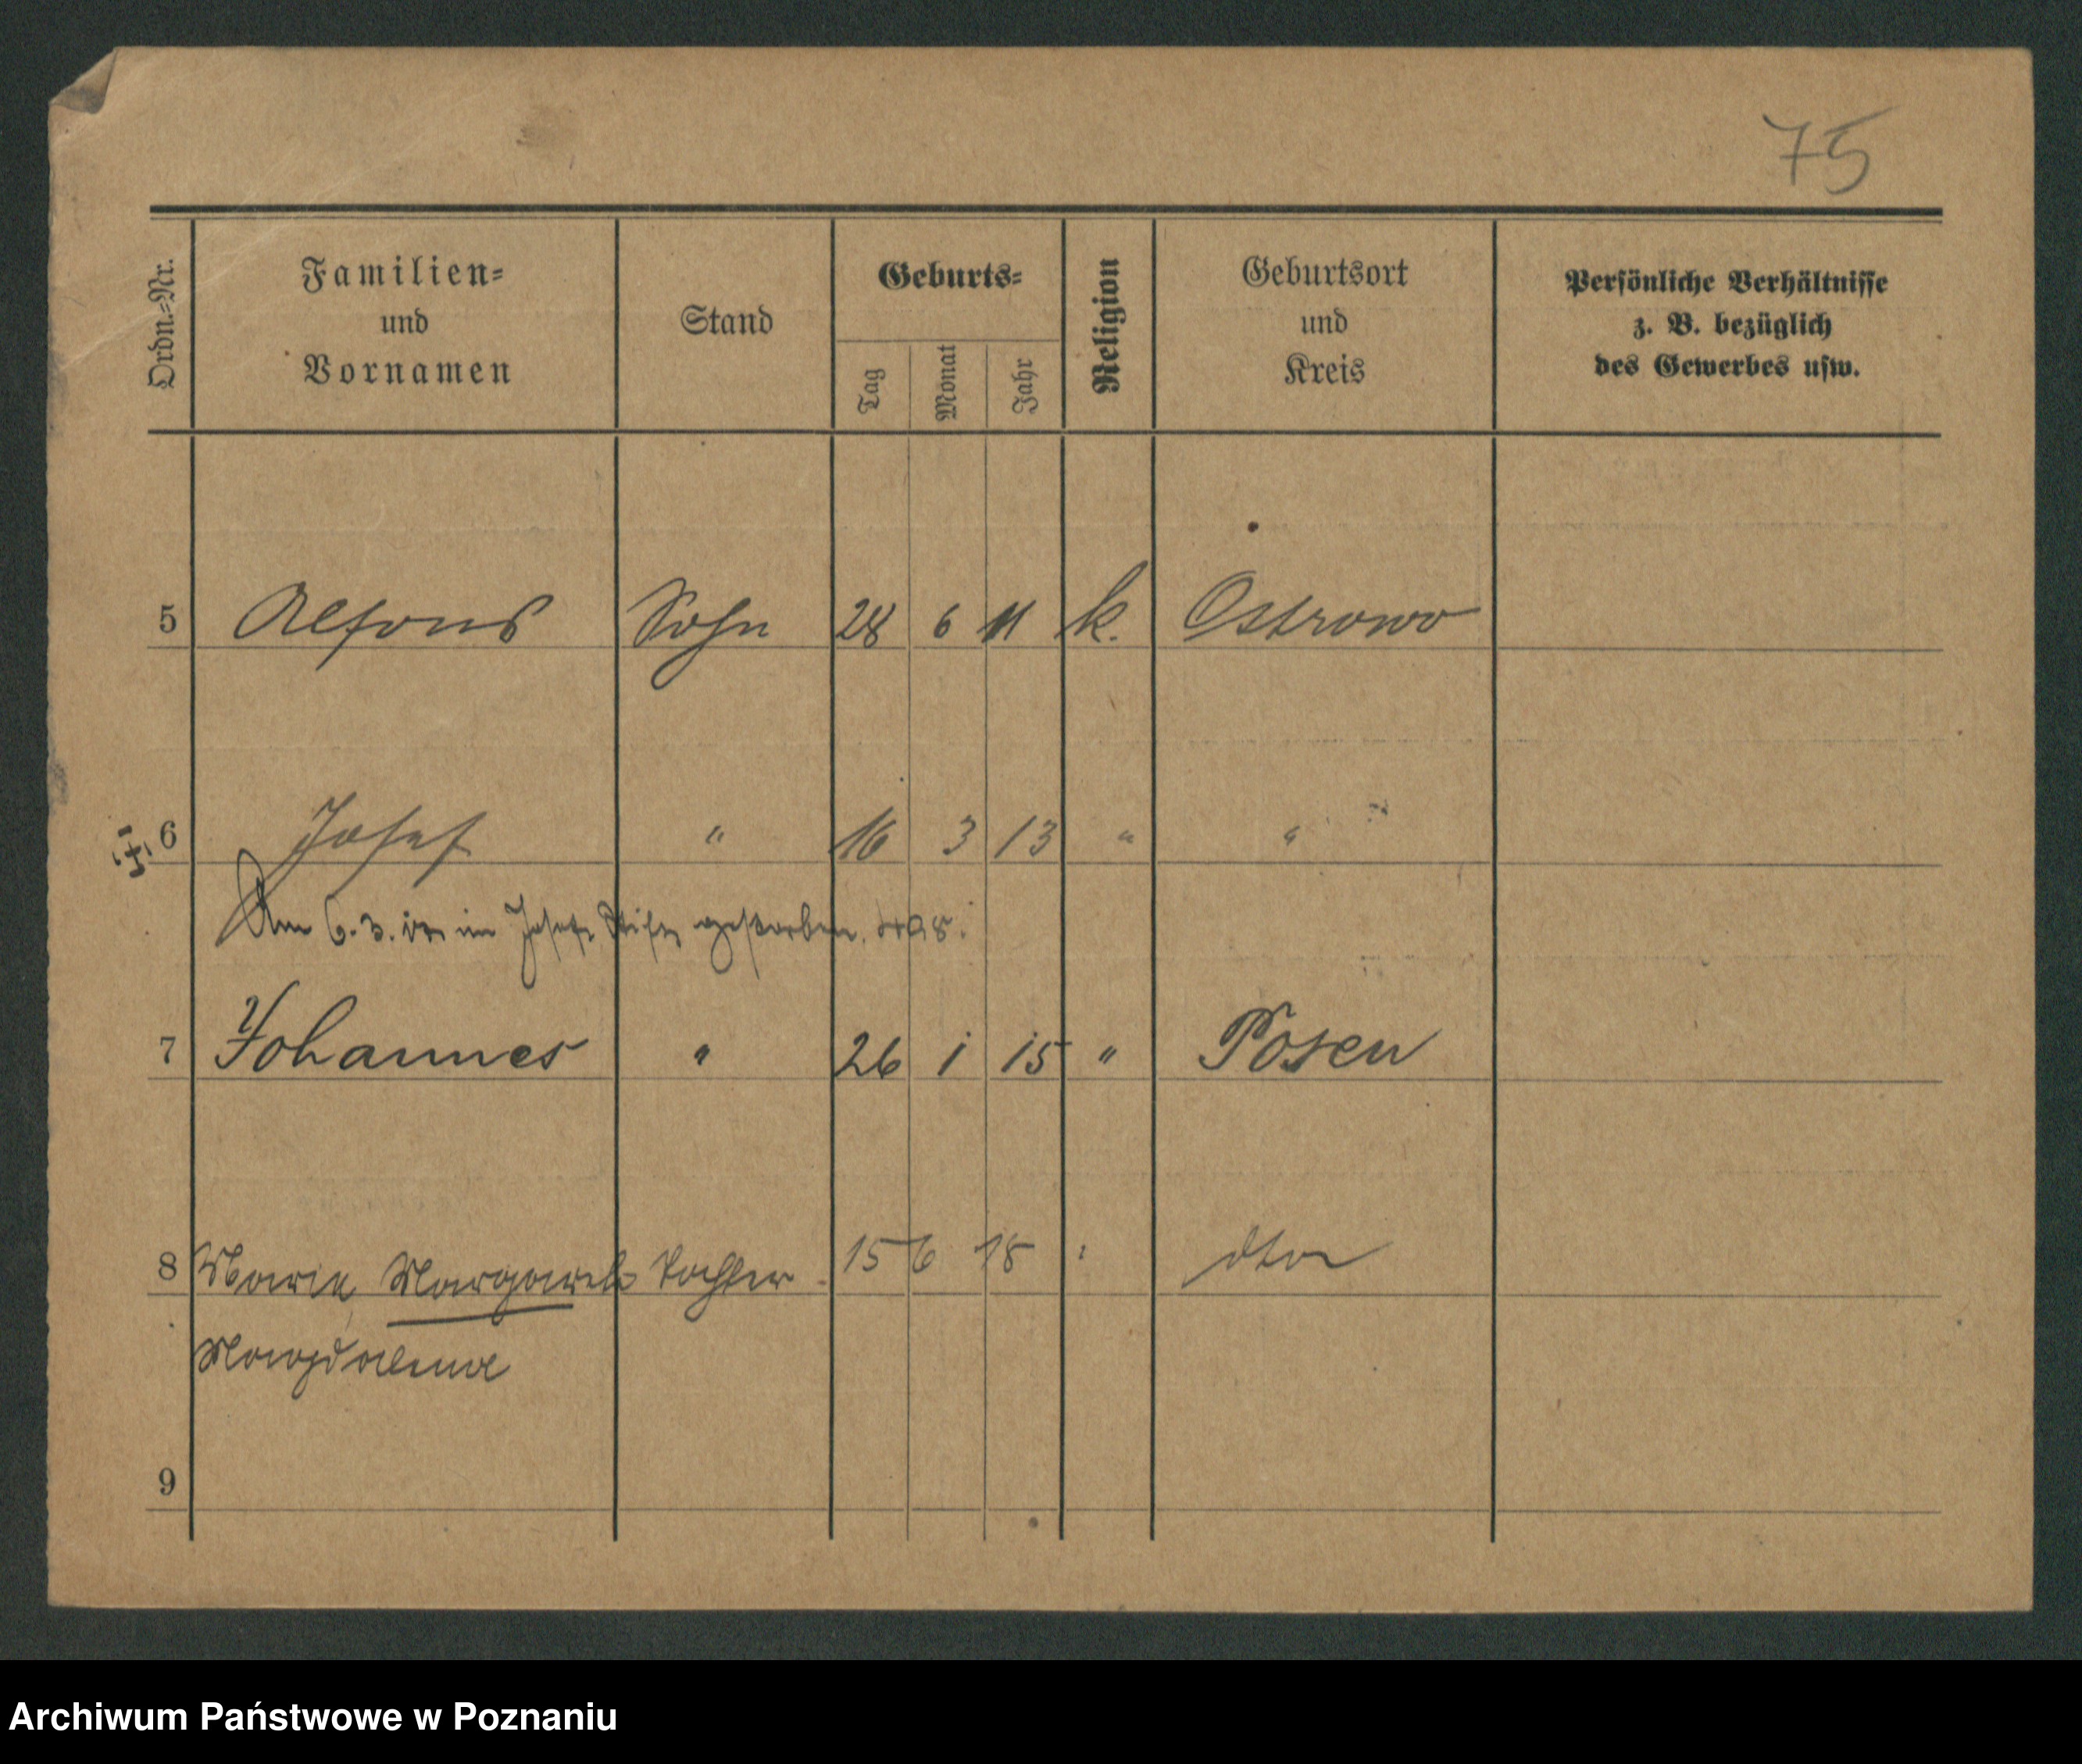 75
Ordn.-Nr.
Familien-
und
Vornamen
Stand
Geburts-
Tag
Monat
Jahr
Religion
Geburtsort
und
Kreis
Persönliche Verhältnisse
z. B. bezüglich
des Gewerbes usw.
5 Alfons Sohn 28 6 11 k. Ostrowo
6 Josef " 16 3 13 " "
Am 6. 3. im Josefs Stift gestorben.
7 Johannes " 26 1 15 " Posen
8 Maria Margarete Tochter 15 6 18 " dto
Magdalena
9
Archiwum Państwowe w Poznaniu